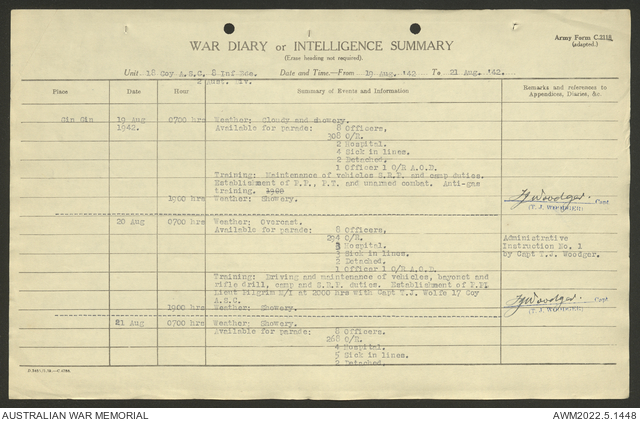 Army Form C.2118.
(adapted.)
WAR DIARY or INTELLIGENCE SUMMARY
(Erase heading not required).
Unit 18 Coy A.S.C. 8 Inf Bde. Date and Time—From 19 Aug. '42 To 21 Aug. '42.
2 Aust. Div.
Place Date Hour Summary of Events and Information Remarks and references to Appendices, Diaries, &c.
Gin Gin 19 Aug 1942. 0700 hrs Weather: Cloudy and showery.
Available for parade: 8 Officers.
308 O/R.
2 Hospital.
4 Sick in lines.
2 Detached.
1 Officer 1 O/R A.O.D.
Training: Maintenance of vehicles S.R.P. and camp duties.
Establishment of P.P., P.T. and unarmed combat. Anti-gas
training. 1900
1900 hrs Weather: Showery.
TJ Woodger. Capt
(T. J. WOODGER)
20 Aug 0700 hrs Weather: Overcast.
Available for parade: 8 Officers.
294 O/R.
3 Hospital.
3 Sick in lines.
2 Detached.
1 Officer 1 O/R A.O.D.
Administrative
Instruction No. 1
by Capt T.J. Woodger.
Training: Driving and maintenance of vehicles, bayonet and
rifle drill, camp and S.R.P. duties. Establishment of P.P.
Lieut Pilgrim M/I at 2000 hrs with Capt T.J. Wolfe 17 Coy
A.S.C.
1900 hrs Weather: Showery.
TJ Woodger. Capt
(T. J. WOODGER)
21 Aug 0700 hrs Weather: Showery.
Available for parade: 8 Officers.
268 O/R.
4 Hospital.
5 Sick in lines.
2 Detached.
AUSTRALIAN WAR MEMORIAL
AWM2022.5.1448